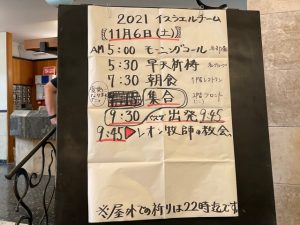 2021 イスラエルチーム
11月6日(土)
AM 5:00 モーニングコール
5:30 早天祈祷
7:30 朝食
集合
9:30 バスで出発 9:45
9:45 ▶ レオン牧師の教会
※屋外での祈りは22時までです